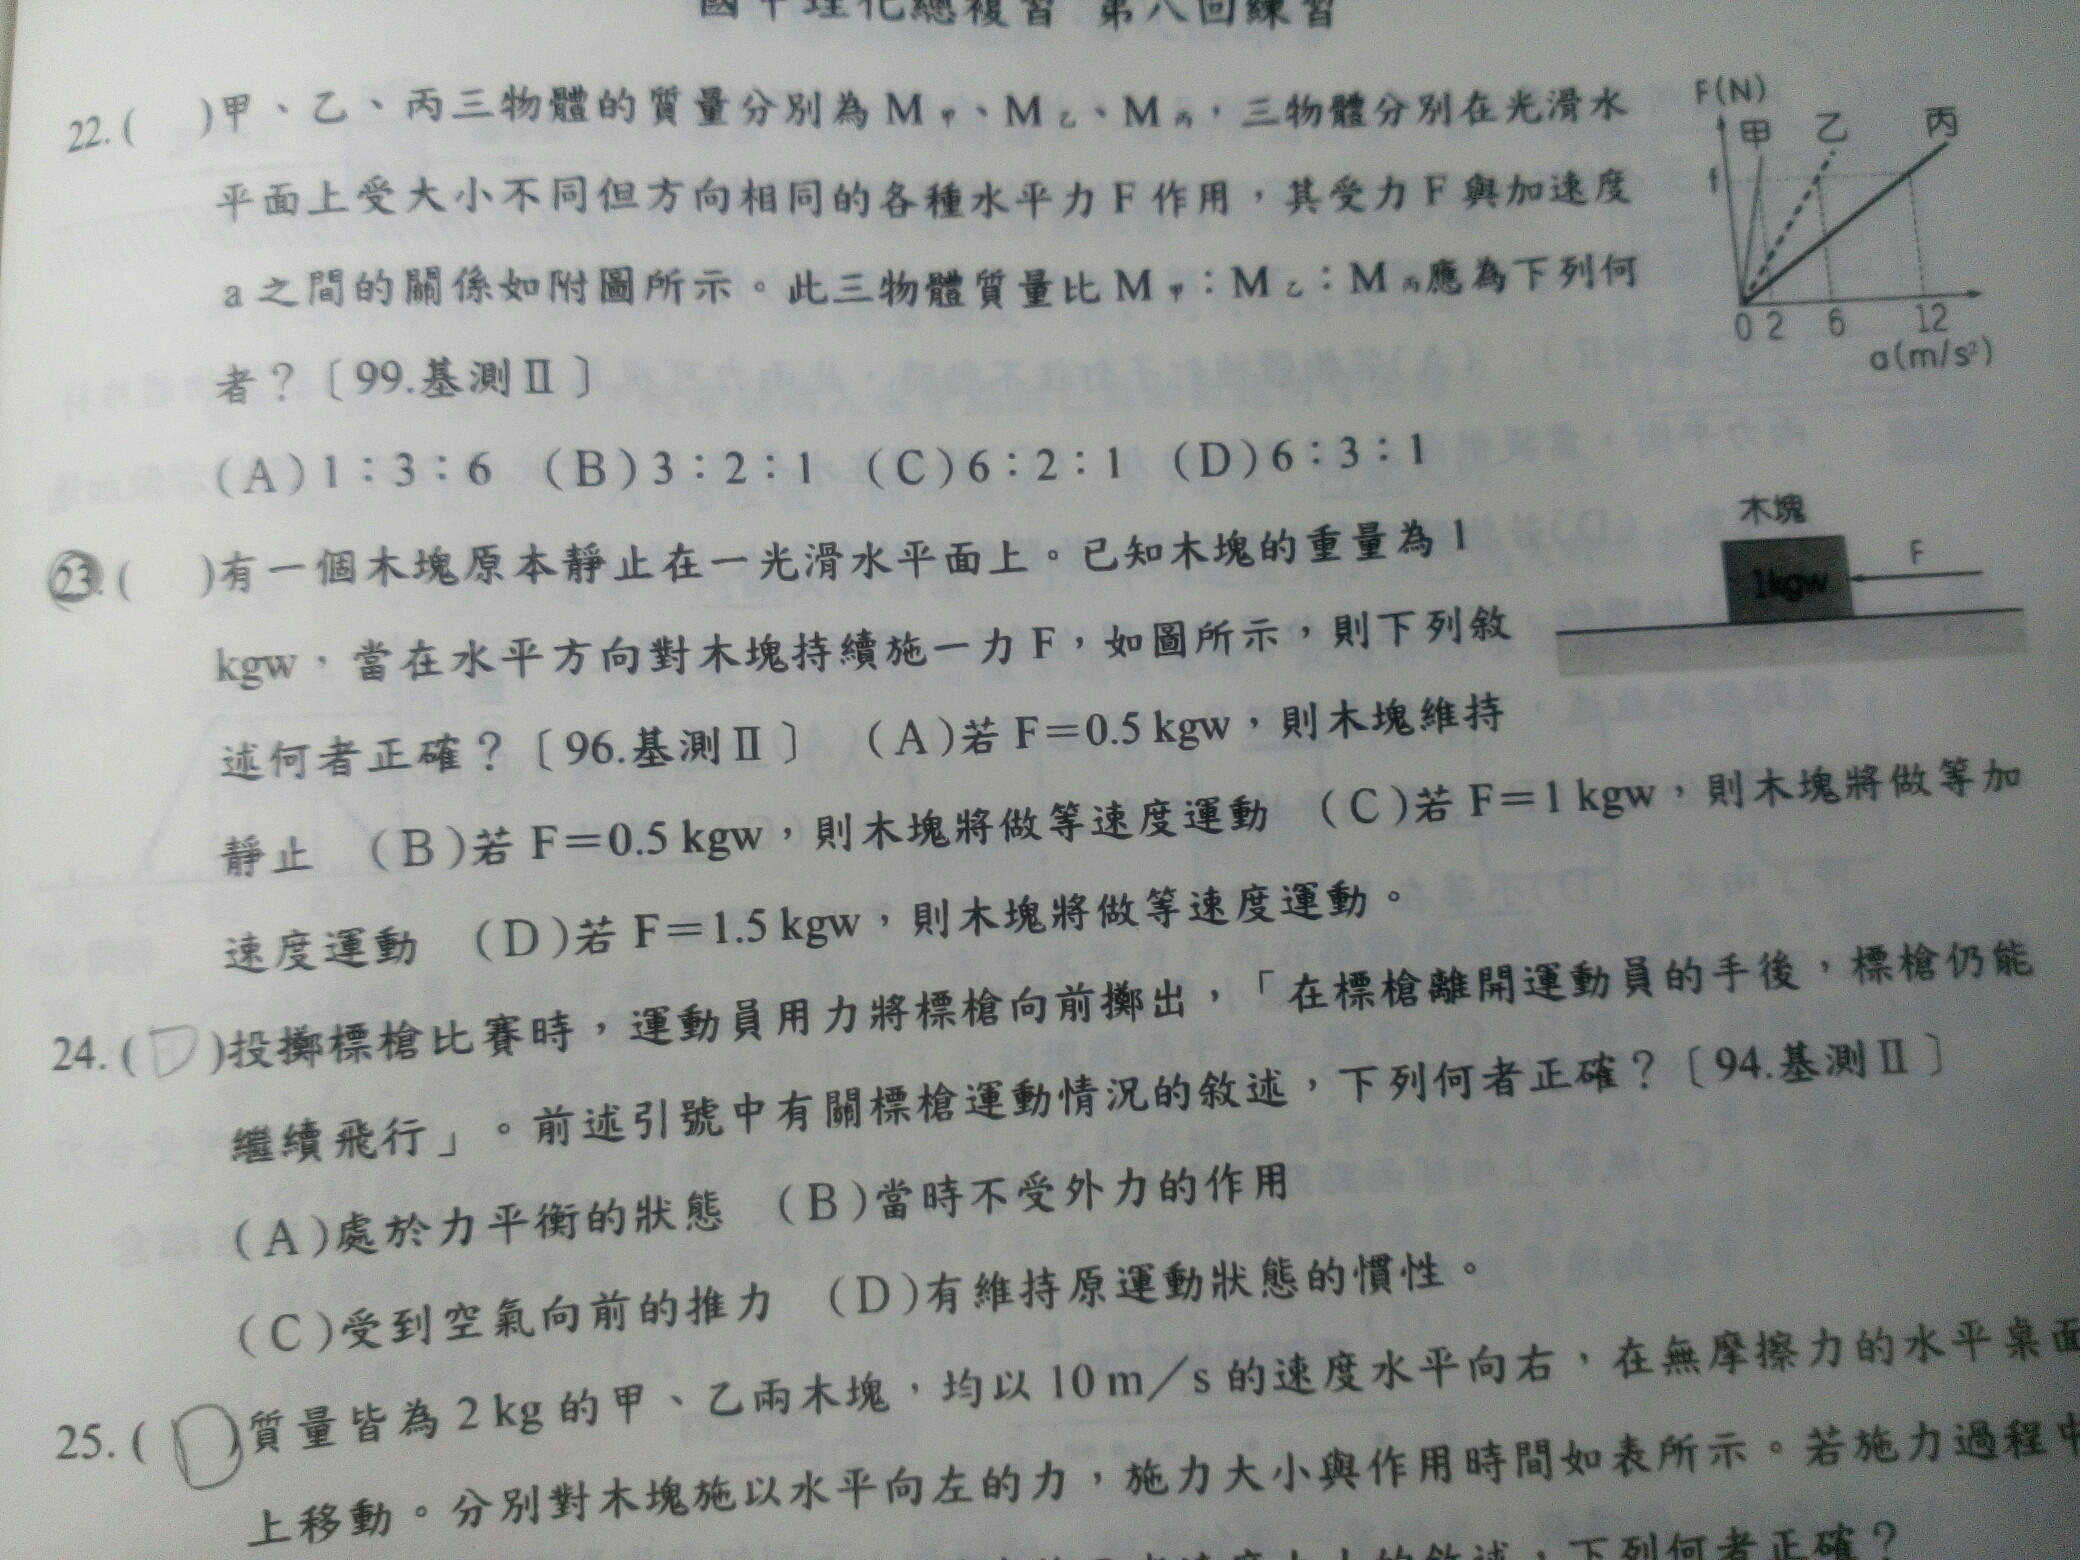 國中理化總複習 第八回練習
22.( )甲、乙、丙三物體的質量分別為M甲、M乙、M丙，三物體分別在光滑水
平面上受大小不同但方向相同的各種水平力F作用，其受力F與加速度
a之間的關係如附圖所示。此三物體質量比M甲：M乙：M丙應為下列何
者？〔99.基測Ⅱ〕
(A)1：3：6 (B)3：2：1 (C)6：2：1 (D)6：3：1
F(N)
甲 乙 丙
f
0 2 6 12
a(m/s²)
23.( )有一個木塊原本靜止在一光滑水平面上。已知木塊的重量為1
kgw，當在水平方向對木塊持續施一力F，如圖所示，則下列敘
述何者正確？〔96.基測Ⅱ〕 (A)若F=0.5 kgw，則木塊維持
靜止 (B)若F=0.5 kgw，則木塊將做等速度運動 (C)若F=1 kgw，則木塊將做等加
速度運動 (D)若F=1.5 kgw，則木塊將做等速度運動。
木塊
1kgw
F
24.(D)投擲標槍比賽時，運動員用力將標槍向前擲出，「在標槍離開運動員的手後，標槍仍能
繼續飛行」。前述引號中有關標槍運動情況的敘述，下列何者正確？〔94.基測Ⅱ〕
(A)處於力平衡的狀態 (B)當時不受外力的作用
(C)受到空氣向前的推力 (D)有維持原運動狀態的慣性。
25.(D)質量皆為2 kg的甲、乙兩木塊，均以10 m／s的速度水平向右，在無摩擦力的水平桌面
上移動。分別對木塊施以水平向左的力，施力大小與作用時間如表所示。若施力過程中
的敘述，下列何者正確？